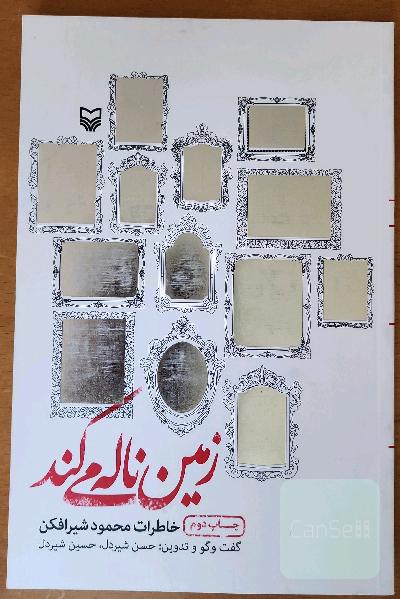 زمین ناله می‌کند
چاپ دوم خاطرات محمود شیرافکن
گفت وگو و تدوین: حسن شیردل، حسین شیردل
CanSell